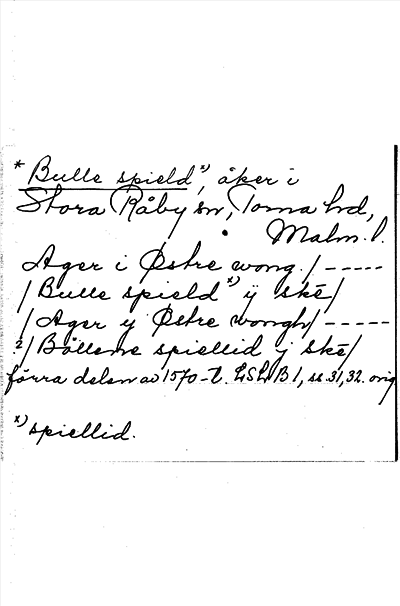 * Bulle spield x), åker i
Stora Råby sn, Torna hd,
Malm. l.
Ager i Østre wong / -----
/ Bulle spield x) ÿ skě /
/ Ager y Østre wongh / -----
2/ Böllerne spiellid j skě /
förra delen av 1570-t. LSLB 1, ss 31, 32. orig
x) spiellid.